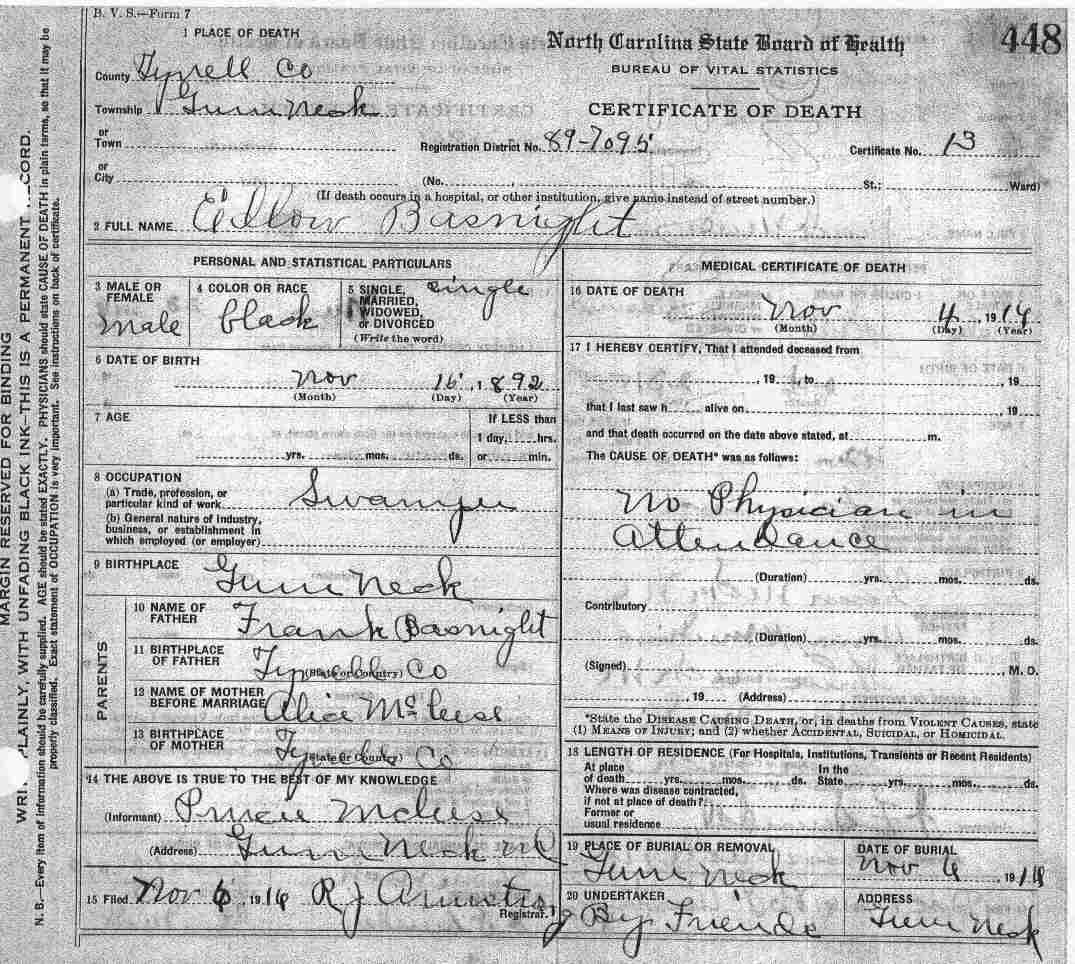 B. V. S.—Form 7
448
North Carolina State Board of Health
BUREAU OF VITAL STATISTICS
CERTIFICATE OF DEATH
1 PLACE OF DEATH
County Tyrrell Co
Township Gum Neck
or
Town
Registration District No. 89-7095 Certificate No. 13
or
City (No. , St.; Ward)
(If death occurs in a hospital, or other institution, give name instead of street number.)
2 FULL NAME Basnight
PERSONAL AND STATISTICAL PARTICULARS
3 MALE OR FEMALE male
4 COLOR OR RACE black
5 SINGLE, MARRIED, WIDOWED, or DIVORCED (Write the word) single
6 DATE OF BIRTH
Nov 15, 1892
(Month) (Day) (Year)
7 AGE
If LESS than
1 day, hrs.
yrs. mos. ds. or min.
8 OCCUPATION
(a) Trade, profession, or particular kind of work Swamper
(b) General nature of industry, business, or establishment in which employed (or employer)
9 BIRTHPLACE Gum Neck
PARENTS
10 NAME OF FATHER Frank Basnight
11 BIRTHPLACE OF FATHER (State or Country) Co
12 NAME OF MOTHER BEFORE MARRIAGE Alice
13 BIRTHPLACE OF MOTHER (State or Country) Co
14 THE ABOVE IS TRUE TO THE BEST OF MY KNOWLEDGE
(Informant)
(Address) Gum Neck NC
15 Filed Nov 6 1914 R J
Registrar.
MEDICAL CERTIFICATE OF DEATH
16 DATE OF DEATH
Nov 4 1914
(Month) (Day) (Year)
17 I HEREBY CERTIFY, That I attended deceased from
, 19 , to , 19
that I last saw h alive on , 19
and that death occurred on the date above stated, at m.
The CAUSE OF DEATH* was as follows:
No Physician in
attendance
(Duration) yrs. mos. ds.
Contributory
(Duration) yrs. mos. ds.
(Signed) , M. D.
, 19 (Address)
*State the DISEASE CAUSING DEATH, or, in deaths from VIOLENT CAUSES, state
(1) MEANS OF INJURY; and (2) whether ACCIDENTAL, SUICIDAL, or HOMICIDAL.
18 LENGTH OF RESIDENCE (For Hospitals, Institutions, Transients or Recent Residents)
At place In the
of death yrs. mos. ds. State yrs. mos. ds.
Where was disease contracted,
if not at place of death?
Former or
usual residence
19 PLACE OF BURIAL OR REMOVAL DATE OF BURIAL
Gum Neck Nov 6 1914
20 UNDERTAKER ADDRESS
By Friends Gum Neck
MARGIN RESERVED FOR BINDING
PLAINLY, WITH UNFADING BLACK INK—THIS IS A PERMANENT
N. B.—Every item of information should be carefully supplied. AGE should be stated EXACTLY. PHYSICIANS should state CAUSE OF DEATH in plain terms, so that it may be
properly classified. Exact statement of OCCUPATION is very important. See instructions on back of certificate.